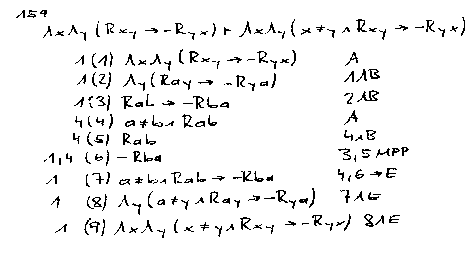 159
ΛxΛy (Rxy → -Ryx) ⊢ ΛxΛy (x≠y ∧ Rxy → -Ryx)
1 (1) ΛxΛy (Rxy → -Ryx) A
1 (2) Λy (Ray → -Rya) 1ΛB
1 (3) Rab → -Rba 2ΛB
4 (4) a≠b ∧ Rab A
4 (5) Rab 4∧B
1,4 (6) -Rba 3,5 MPP
1 (7) a≠b ∧ Rab → -Rba 4,6 →E
1 (8) Λy (a≠y ∧ Ray → -Rya) 7ΛE
1 (9) ΛxΛy (x≠y ∧ Rxy → -Ryx) 8ΛE